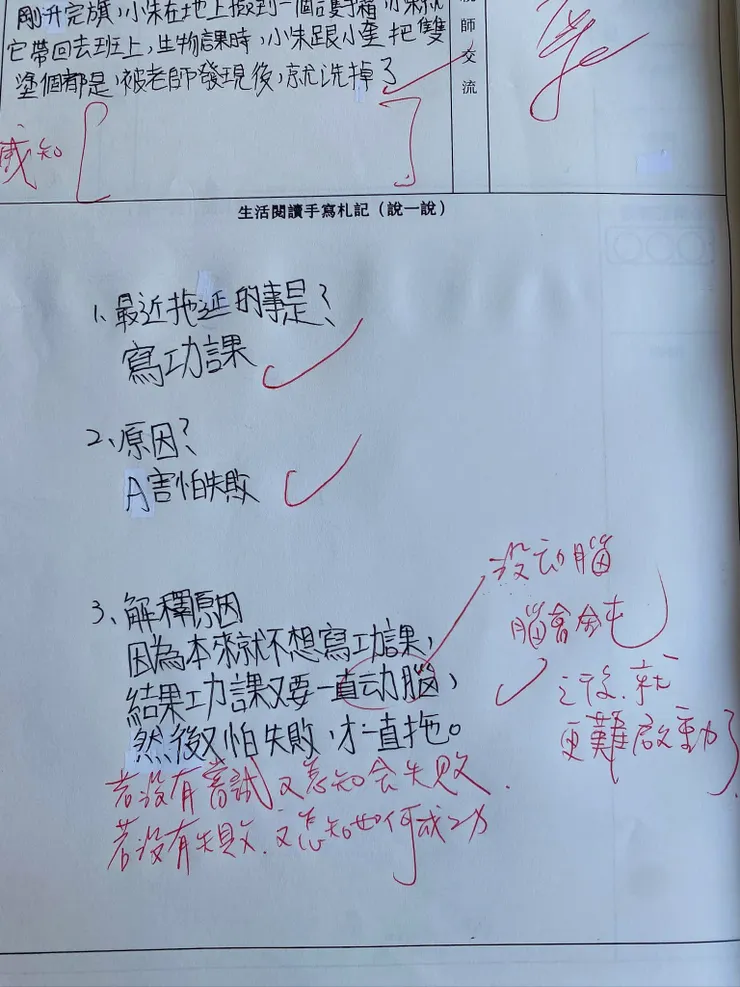 剛升完旗,小朱在地上撿到一個護手霜,小朱就
它帶回去班上,生物課時,小朱跟小奎把雙
塗個都是,被老師發現後,就洗掉了
師
交
流
感知
生活閱讀手寫札記(說一說)
1、最近拖延的事是?
寫功課
2、原因?
A害怕失敗
3、解釋原因
因為本來就不想寫功課,
結果功課又要一直动腦,
然後又怕失敗,才一直拖。
沒动腦
腦會鈍
之後,就
更難啟動了.
若沒有嘗試又怎知会失敗.
若沒有失敗.又怎知如何成功